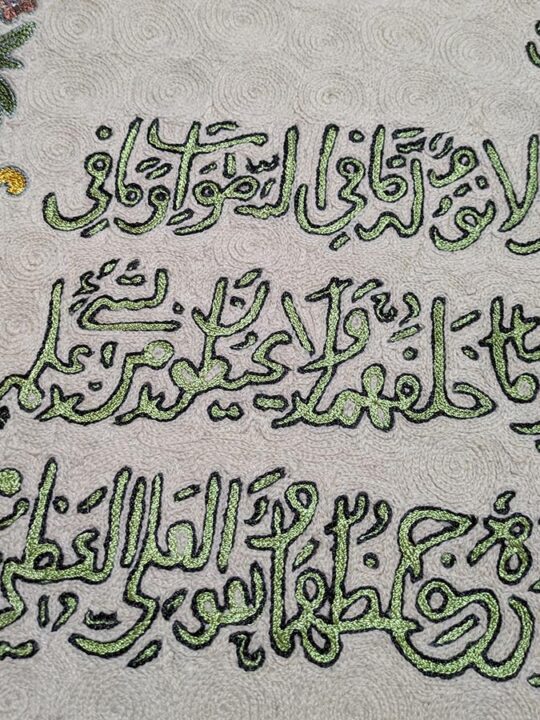 لا نوم له ما في السموات وما في
ما خلفهم ولا يحيطون بشيء من علمه
حفظهما وهو العلي العظيم